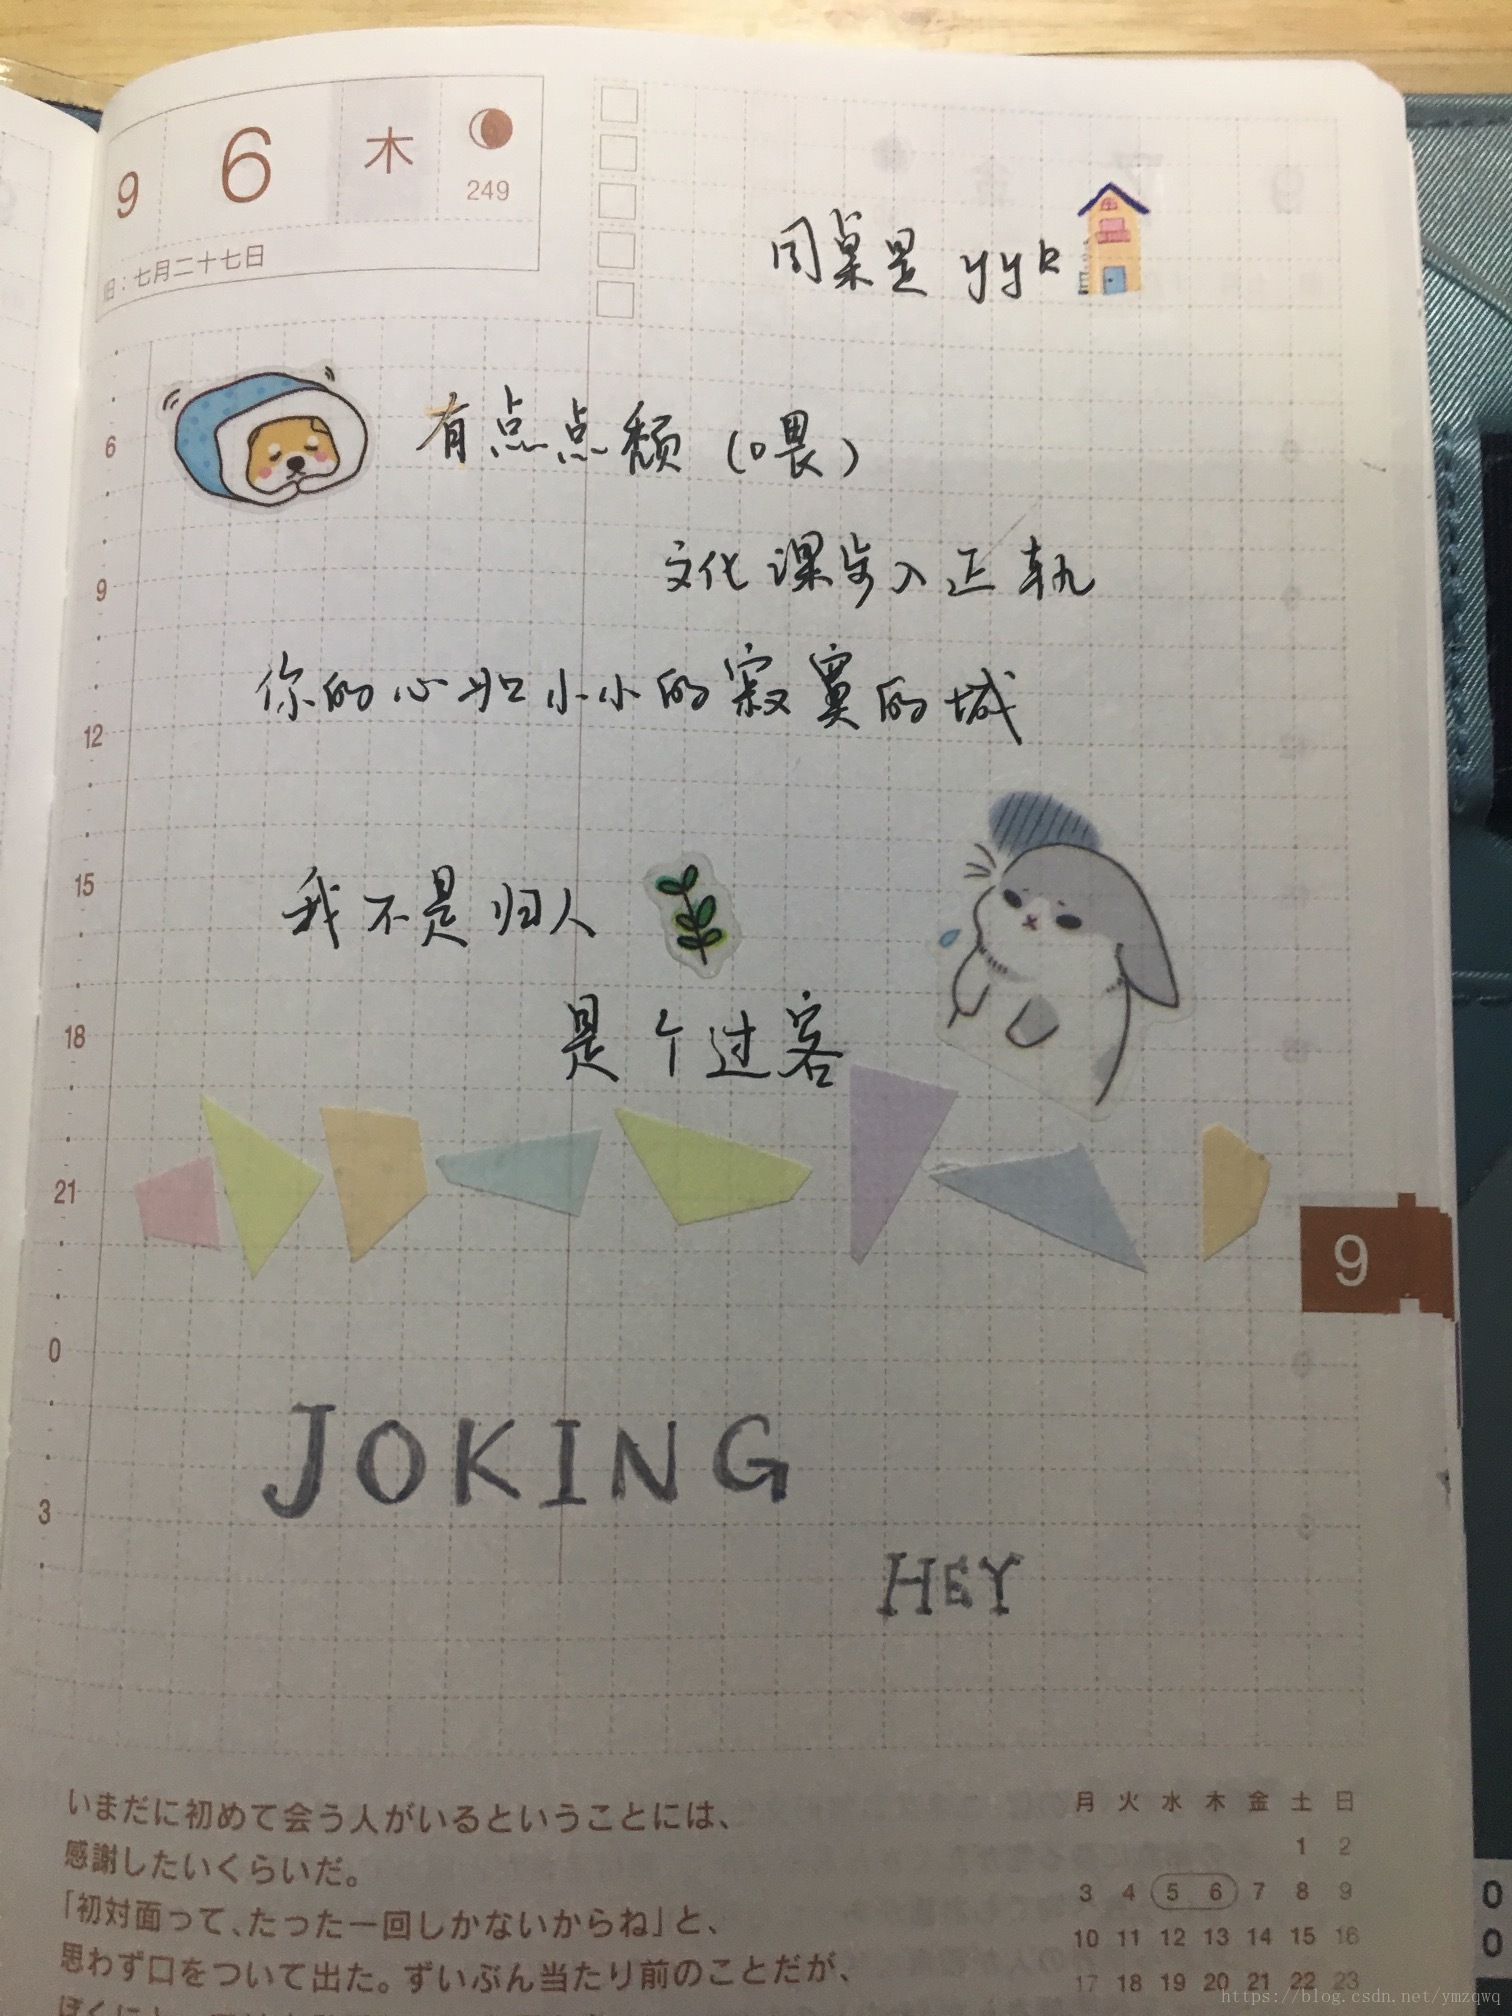 9 6 木
249
旧：七月二十七日
同桌是 yyk
有点点颓（喂）
文化课步入正轨
你的心如小小的寂寞的城
我不是归人
是个过客
6
9
12
15
18
21
0
3
9
JOKING
HEY
いまだに初めて会う人がいるということには、
感謝したいくらいだ。
「初対面って、たった一回しかないからね」と、
思わず口をついて出た。ずいぶん当たり前のことだが、
月 火 水 木 金 土 日
1 2
3 4 5 6 7 8 9
10 11 12 13 14 15 16
17 18 19 20 21 22 23
0
0
https://blog.csdn.net/ymzqwq